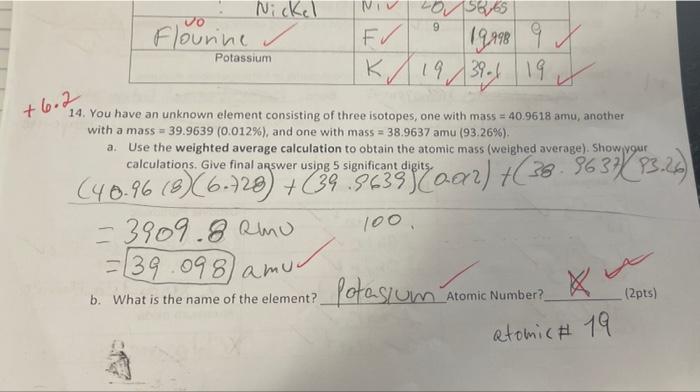 Nickel Ni 28 58.65
Flourine F 9 19.998 9
Potassium K 19 39.1 19
+6.2
14. You have an unknown element consisting of three isotopes, one with mass = 40.9618 amu, another
with a mass = 39.9639 (0.012%), and one with mass = 38.9637 amu (93.26%).
a. Use the weighted average calculation to obtain the atomic mass (weighed average). Show your
calculations. Give final answer using 5 significant digits.
(40.9618)(6.728) + (39.9639)(0.012) + (38.9637)(93.26)
100.
= 3909.8 amu
= 39.098 amu
b. What is the name of the element? Potasium Atomic Number? X (2pts)
atomic # 19